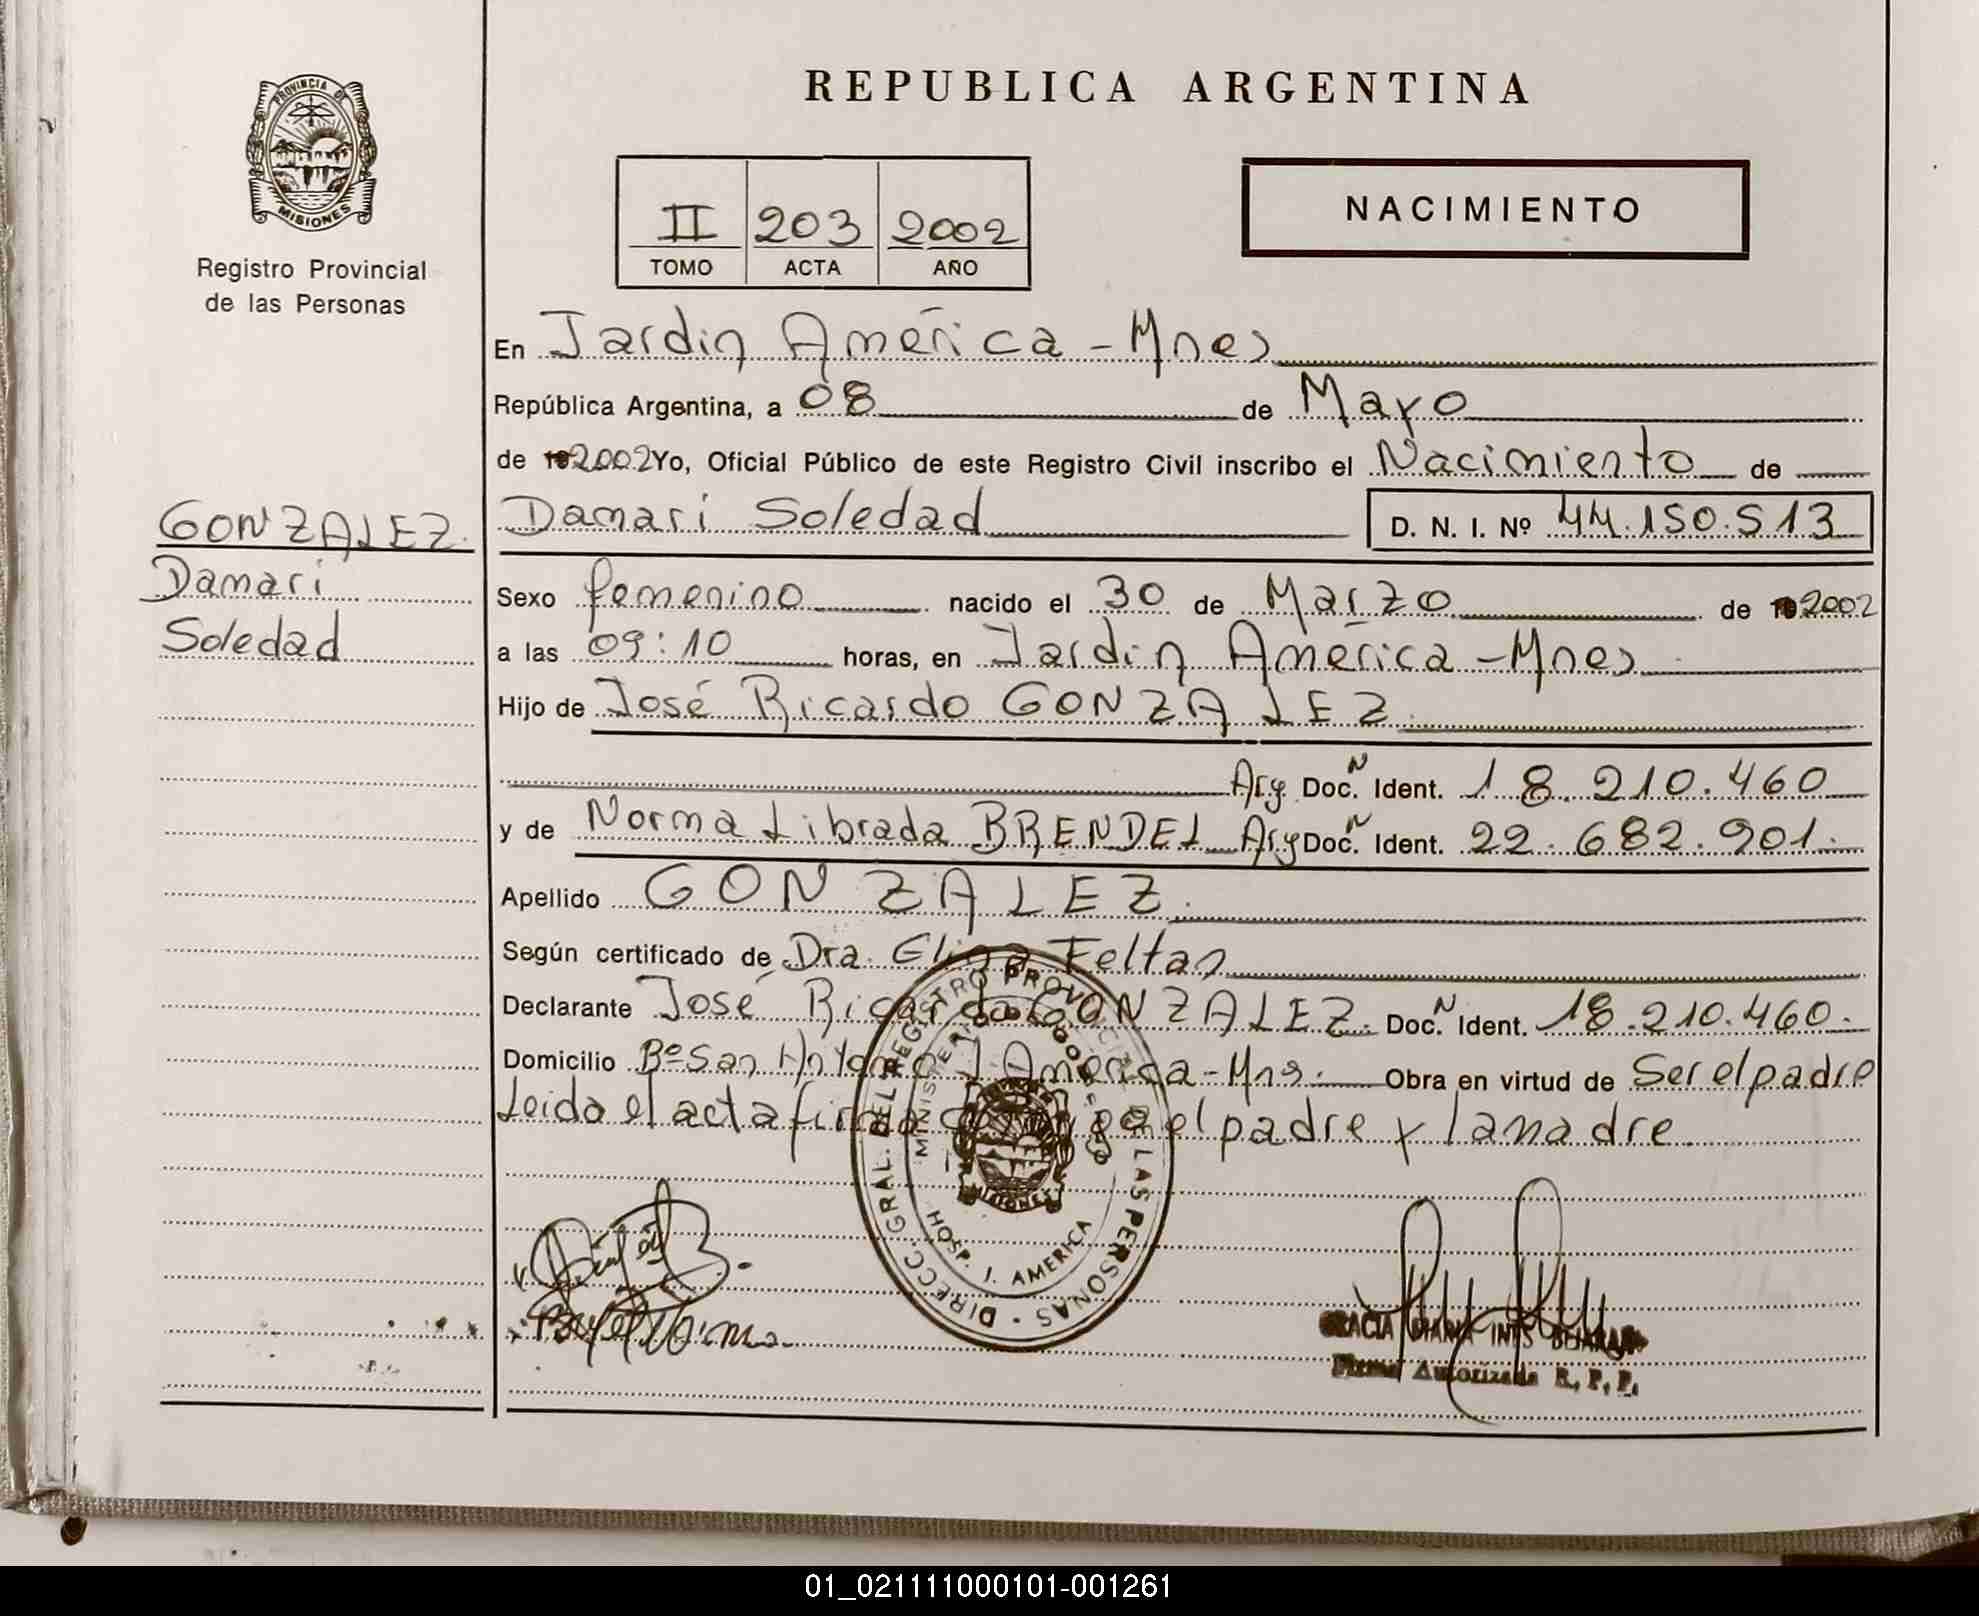 REPUBLICA ARGENTINA
PROVINCIA DE
MISIONES
Registro Provincial
de las Personas
II 203 2002
TOMO ACTA AÑO
NACIMIENTO
En Jardin América - Mnes
República Argentina, a 08 de Mayo
de 2002 Yo, Oficial Público de este Registro Civil inscribo el Nacimiento de
Damari Soledad D. N. I. Nº 44.150.513
GONZALEZ
Damari
Soledad
Sexo femenino nacido el 30 de Marzo de 2002
a las 09:10 horas, en Jardin América - Mnes
Hijo de José Ricardo GONZALEZ
Arg Doc. N Ident. 18.210.460
y de Norma Librada BRENDEL Arg Doc. N Ident. 22.682.901.
Apellido GONZALEZ
Según certificado de Dra. Feltan
Declarante José Ricardo GONZALEZ. Doc. N Ident. 18.210.460.
Domicilio Bº San Antonio J América - Mns. Obra en virtud de Ser el padre
Leida el acta firma el padre y la madre
DIRECC. GRAL. DEL REGISTRO PROVINCIAL DE LAS PERSONAS
MINISTERIO DE GOBIERNO
MISIONES
HOSP. J. AMERICA
GRACIA MARIA INES
Firma Autorizada R. P. P.
01_021111000101-001261